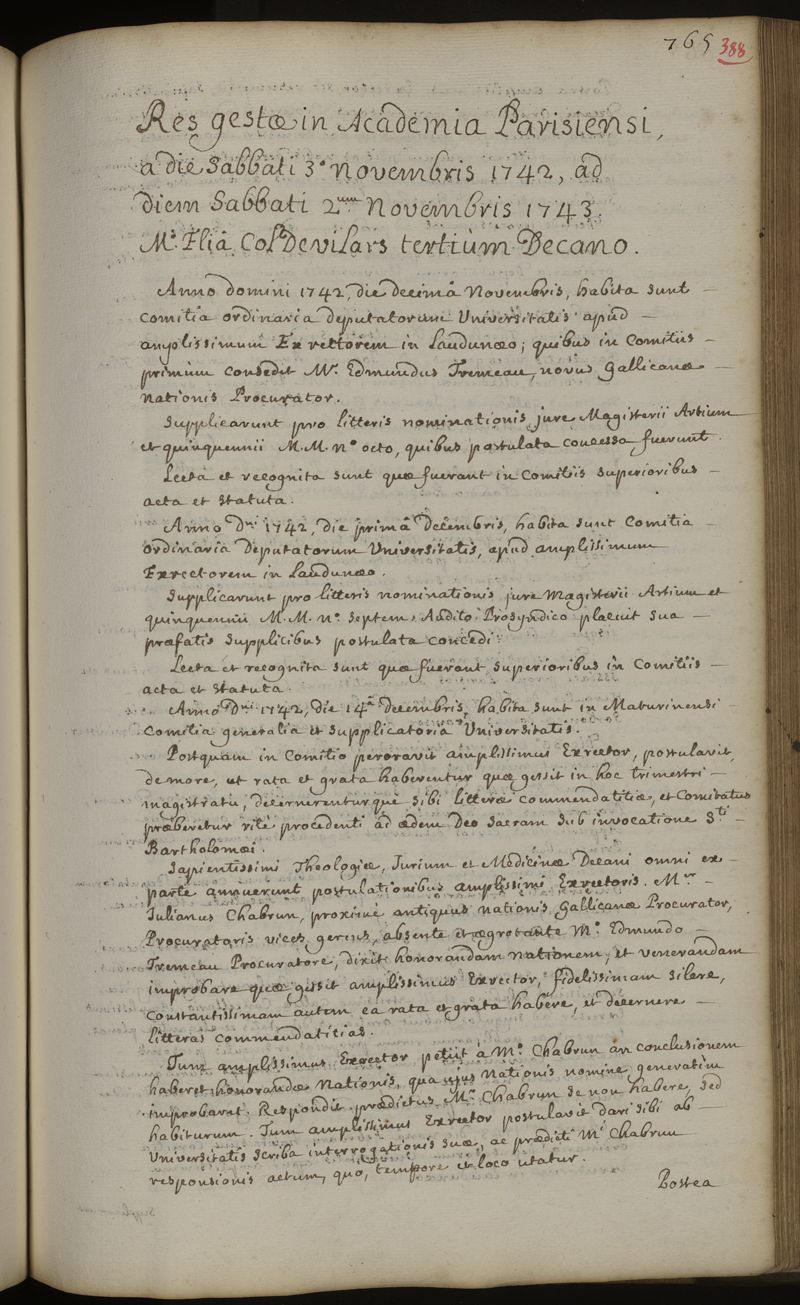 765 388
Res gestæ in Academia Parisiensi,
a die Sabbati 3ª Novembris 1742, ad
diem Sabbati 2um Novembris 1743.
Mº. Eliâ Colº. De vilars tertiùm Decano.
Anno domini 1742, die decimâ Novembris, habita sunt
comitia ordinaria deputatorum Universitatis apud
amplissimum Exrectorem in Laudunæo; quibus in Comitiis
primùm consedit Mr. Edmundus Tremeau, novus gallicanæ
nationis Procurator.
Supplicarunt pro litteris nominationis jure Magisterii Artium
et quinquennii M.M. nº octo, quibus postulata concessa fuerunt.
Lecta et recognita sunt quæ fuerant in Comitiis superioribus
acta et statuta.
Anno Dni 1742, die primâ Decembris, habita sunt Comitia
ordinaria Deputatorum Universitatis, apud amplissimum
Exrectorem in Laudunæo.
Supplicarunt pro litteris nominationis jure Magisterii Artium et
quinquennii M.M. nº. septem. Audito Prosyndico placuit sua
præfatis supplicibus postulata concedi.
Lecta et recognita sunt quæ fuerant superioribus in Comitiis
acta et statuta.
Anno Dni 1742, die 14ª Decembris, habita sunt in Maturinensi
Comitia generalia et supplicatoria Universitatis.
Postquam in Comitio peroravit amplissimus Exrector, postulavit,
de more, ut rata et grata haberentur quæ gessit in hoc trimestri
magistratu, decernerenturque sibi litteræ commendatitiæ, et Comitatus
præberetur ritè procedenti ad ædem Deo Sacram sub invocatione Sti
Bartholomæi.
Sapientissimi Theologiæ, Jurium et Medicinæ Decani omni ex
parte annuerunt postulationibus amplissimi Exrectoris. Mr
Julianus Chabrun, proximè antiquus nationis Gallicanæ Procurator,
Procuratoris vices gerens, absente et ægrotante Mº. Edmundo
Tremeau Procuratore, dixit honorandam nationem, et venerandam
improbare quæ gessit amplissimus Exrector, fidelissimam silere,
constantissimam autem ea rata et grata habere, et decernere
litteras commendatitias.
Tum amplissimus Exrector petiit à Mº. Chabrun an conclusionem
haberet honorandæ Nationis, quâ ejus Nationis nomine generatim
improbaret. Respondit prædictus Mr. Chabrun se non habere, sed
habiturum. Tum amplissimus Exrector postulavit dari sibi ab
Universitatis scriba interrogationis suæ, ac prædicti Mi Chabrun
responsionis actum, quo, tempore et loco utatur.
Postea